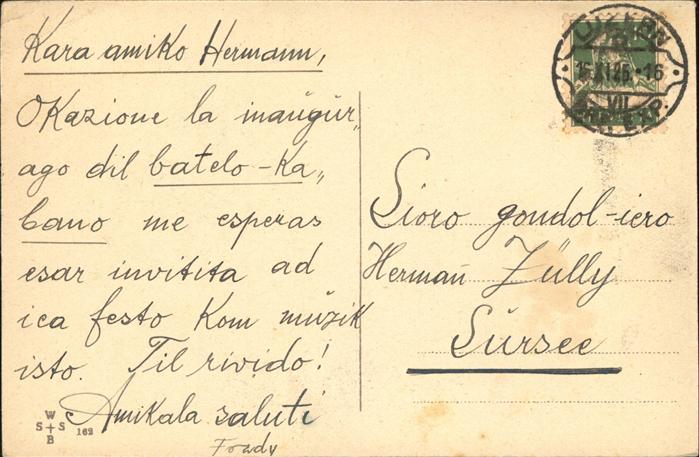 Kara amiko Hermann,
Okazione la inaugur„
ago dil batelo-ka„
bano me esperas
esar invitita ad
ica festo kom muzik
isto. Til rivido!
Amikala saluti
W
S + S
B
162
LUZERN
VII
EXP.
Sioro gondol-iero
Herman̄ Zülly
Sursee